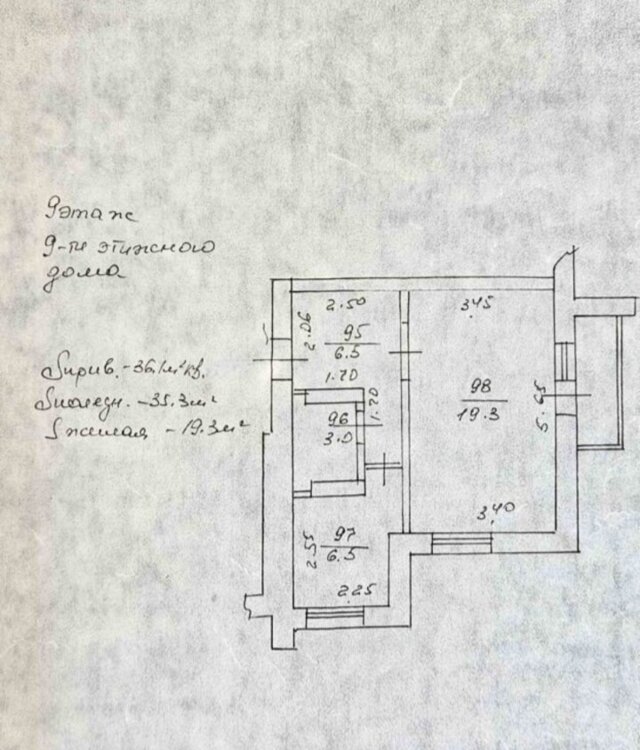 9 этаж
9-ти этажного
дома
Sприв. - 36.1 м² кв.
- 35.3 м²
Sжилая - 19.3 м²
2.50
3.45
2.06
95
6.5
1.20
98
19.3
5.65
96
3.0
1.70
3.40
97
6.5
2.55
2.25